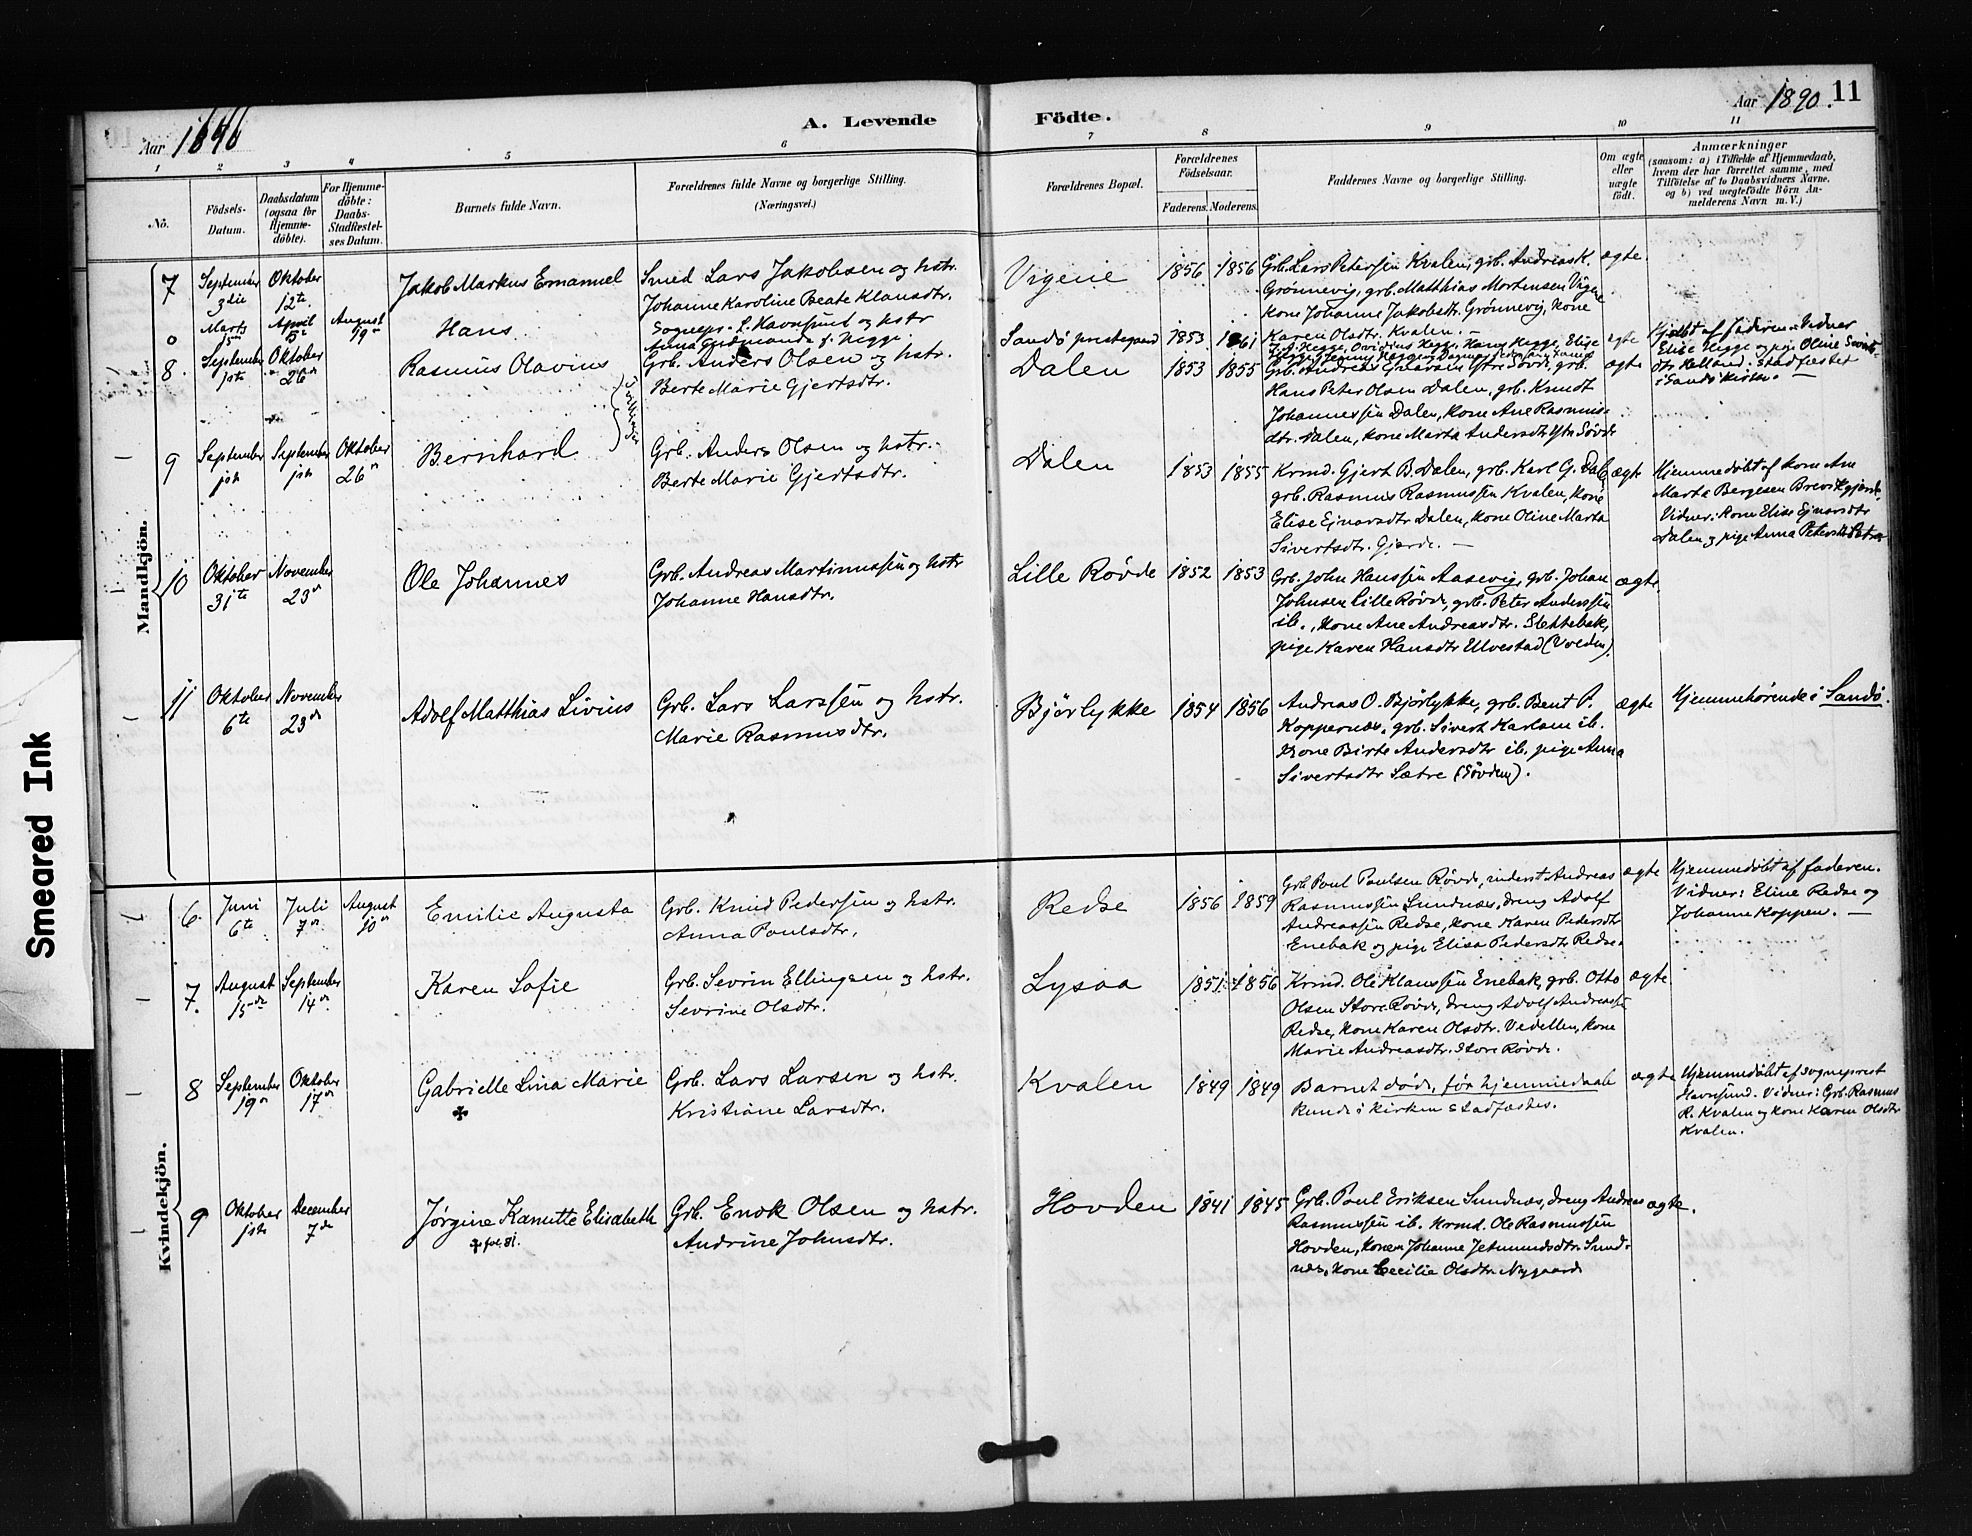 Aar 1890
A. Levende
Födte.
Aar 1890. 11
1 2 3 4 5 6 7 8 9 10 11
No.
Födsels-
Datum.
Daabsdatum
(ogsaa for
Hjemme-
döbte).
For Hjemme-
döbte:
Daabs-
Stadfæstel-
ses Datum.
Barnets fulde Navn.
Forældrenes fulde Navne og borgerlige Stilling.
(Næringsvei.)
Forældrenes Bopæl.
Forældrenes
Födselsaar.
Faderens. Moderens.
Faddernes Navne og borgerlige Stilling.
Om ægte
eller
uægte
födt.
Anmærkninger
(saasom: a) i Tilfælde af Hjemmedaab,
hvem der har forrettet samme, med
Tilföielse af to Daabsvidners Navne,
og b) ved uægtefödte Börn An-
melderens Navn m. V.)
Mandkjön.
7 September 3die Oktober 12te Jakob Markus Emanuel
Smed Lars Jakobsen og hstr.
Johanne Karoline Beate Klausdtr.
Vigene 1856 1856
Grb. Lars Petersen Kvalen, grb. Andreas K.
Grønnevig, grb. Matthias Mortensen Vigene
kone Johanne Jakobsdtr. Grønnevig, kone
Karen Olsdtr. Kvalen.
ægte
Marts April August 19 Hans
Sognepr. L. Havnsund og hstr
Anna Gudmunda f. Hegge.
Sandö prestegaard 1853 1861
ægte
Hjdöbt af faderen. Vidner
Elise Hegge og pige Oline Siverts-
dtr Helland. Stadfæstet
i Sandö kirke.
8 September 1ste Oktober 26 Rasmus Olavius
Grb. Anders Olsen og hstr.
Berte Marie Gjertsdtr.
Dalen 1853 1855
Hans Peter Olsen Dalen, grb. Knudt
Johannessen Dalen, kone Ane Rasmus-
dtr. Dalen, kone Marta Andersdtr Ytre Sövde
ægte
9 September 1ste September 1ste Oktober 26 Bernhard
Grb. Anders Olsen og hstr.
Berte Marie Gjertsdtr.
Dalen 1853 1855
Krmd. Gjert B. Dalen, grb. Karl G. Dale
grb. Rasmus Rasmussen Kvalen, kone
Elise Ejnarsdtr Dalen, kone Oline Marta
Sivertsdtr. Gjærde. —
ægte
Hjemmedöbt af kone Ane
Marta Bergesen Brevikgjærde.
Vidner: kone Elise Ejnarsdtr
Dalen og pige Anna
10 Oktober 31te November 23 Ole Johannes
Grb. Andreas Martinussen og hstr
Johanne Hansdtr.
Lille Rövde 1852 1853
Grb. John Hanssen Aasevig, grb. Johan
Johnsen Lille Rövde, grb. Peter Anderssen
ib., kone Ane Andreasdtr. Slettebak,
pige Karen Hansdtr Ulvestad (Volden).
ægte
11 Oktober 6te November 23 Adolf Matthias Livius
Grb. Lars Larssen og hstr.
Marie Rasmusdtr.
Bjørlykke 1854 1856
Andreas O. Bjørlykke, grb. Bent P.
Koppernæs, grb. Sivert Karlsen ib.
kone Birte Andersdtr ib. pige Anna
Sivertsdtr Sætre (Sövden).
ægte
Hjemmehörende i Sandö.
Kvindekjön.
6. Juni 6te Juli 7 August 10 Emilie Augusta
Grb. Knud Pedersen og hstr.
Anna Poulsdtr.
Redse 1856 1859
Grb. Poul Poulsen Rövde, inderst Andreas
Rasmussen Sundnæs, dreng Adolf
Andreassen Redse, kone Karen Pedersdtr
Enebak og pige Elisa Pedersdtr Redse.
ægte
Hjemmedöbt af faderen.
Vidner: Eline Redse og
Johanne Koppen. —
7. August 15de September 14 Karen Sofie
Grb. Sevrin Ellingsen og hstr.
Sevrine Olsdtr.
Lysaa 1851 1856
Krmd. Ole Klaussen Enebak, grb. Otto
Olsen Store Rövde, dreng Adolf Andreassen
Redse, kone Karen Olsdtr. Vedellen, kone
Marie Andreasdtr. Store Rövde.
ægte
8 September 19 Oktober 17 Gabrielle Lina Marie
Grb. Lars Larsen og hstr.
Kristiane Larsdtr.
Kvalen 1849 1849
Barnet döde, för hjemmedaab
kunde i kirken stadfæstes.
ægte
Hjemmedöbt af sogneprest
Havnsund. Vidner: Grb. Rasmus
R. Kvalen og kone Karen Olsdtr
Kvalen.
9 Oktober 1ste December 7de Jørgine Kanutte Elisabeth
fol. 81.
Grb. Enok Olsen og hstr.
Andrine Johnsdtr.
Hovden 1841 1845
Grb. Poul Eriksen Sundnæs, dreng Andreas
Rasmussen ib. krmd. Ole Rasmussen
Hovden, kone Johanne Jetmundsdtr. Sund-
næs, kone Cecilie Olsdtr Nygaard
ægte.
Smeared Ink